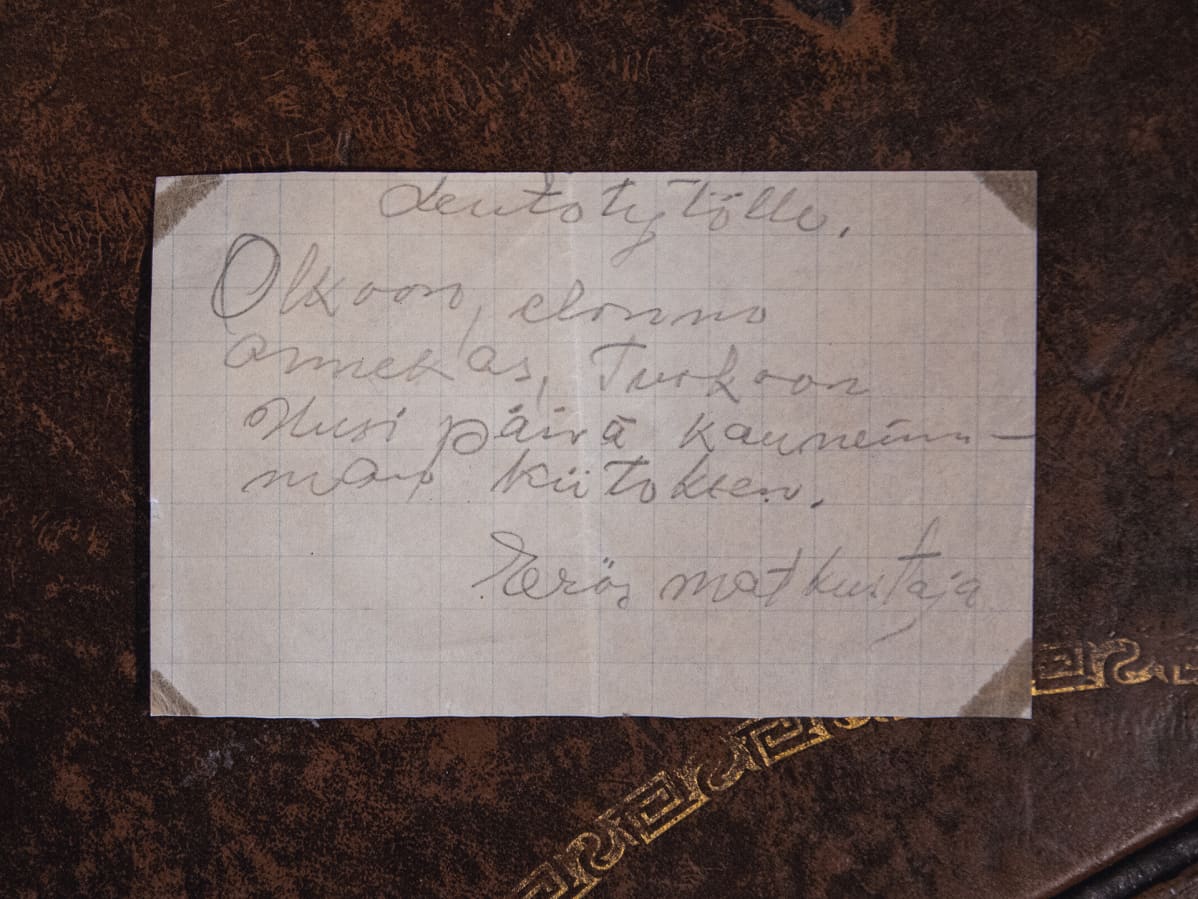 Lentotytölle.
Olkoon, elonne
onnekas, Tuokoon
Uusi päivä kauneim-
man kiitoksen.
Eräs matkustaja